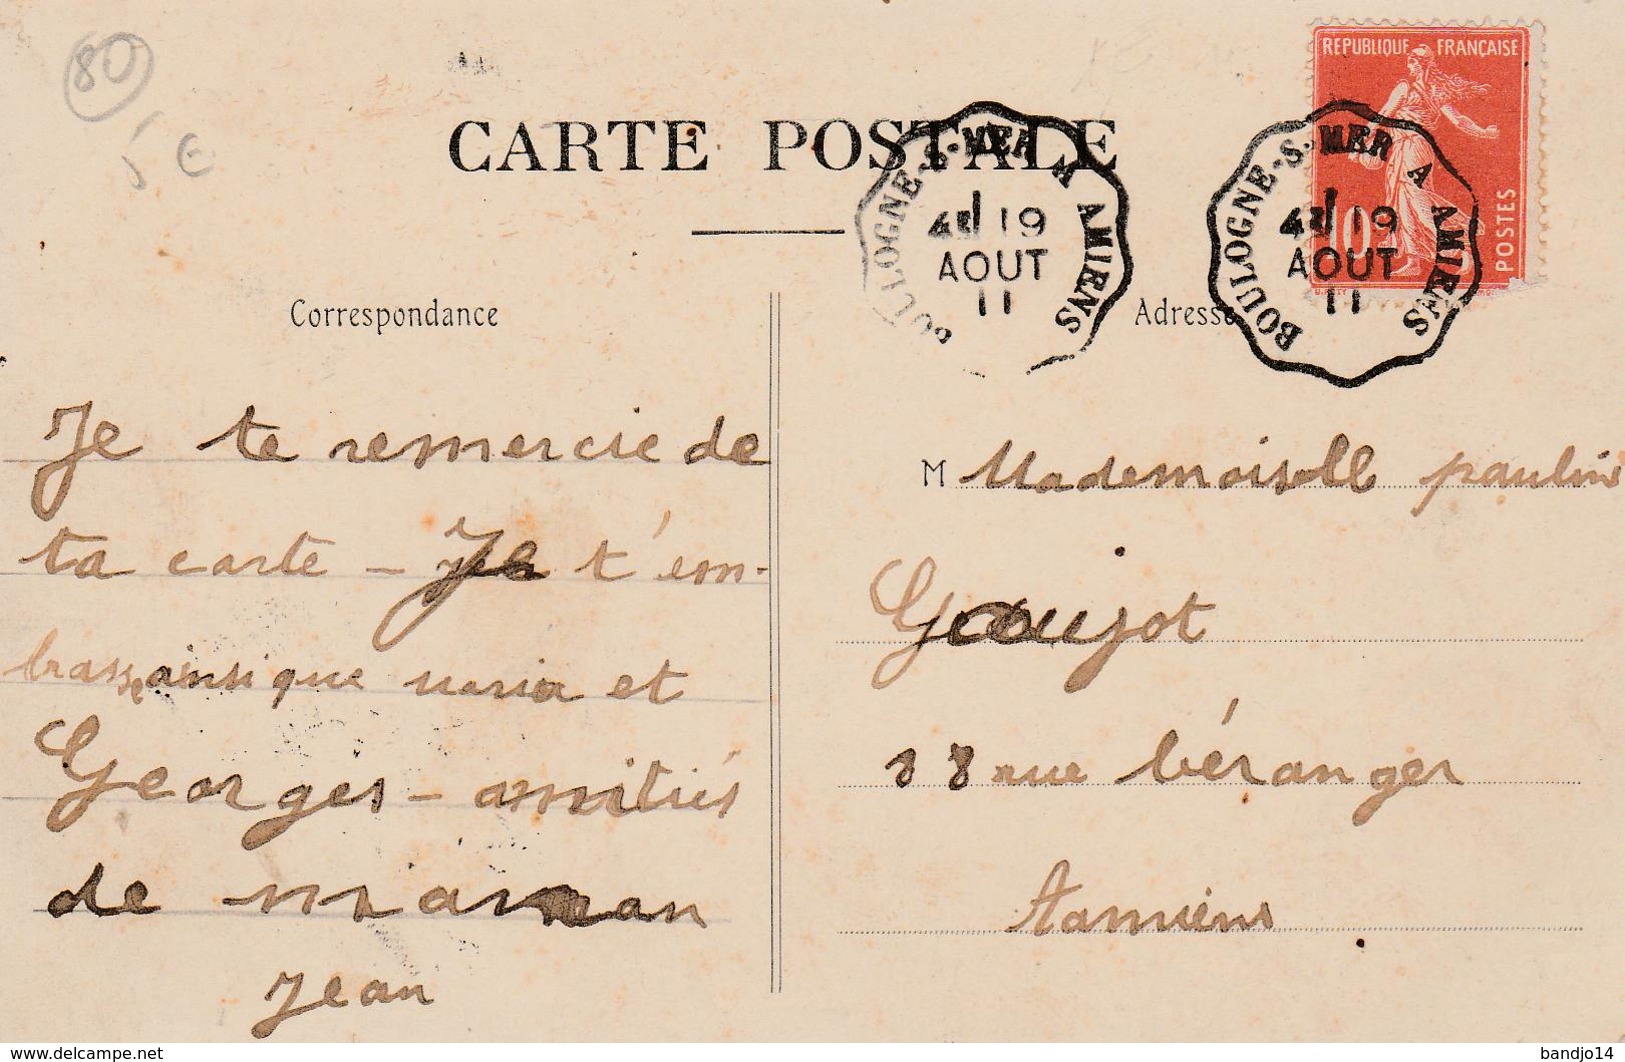 80
5 €
CARTE POSTALE
REPUBLIQUE FRANÇAISE
10
POSTES
BOULOGNE-S-MER A AMIENS
19
AOUT
11
BOULOGNE-S-MER A AMIENS
19
AOUT
11
Correspondance
Je te remercie de
ta carte – Je t'em-
brasse ainsi que maria et
Georges – amitiés
de maman
Jean
Adresse
M Mademoiselle pauline
Goujot
rue béranger
Aamiens
www.delcampe.net
bandjo14